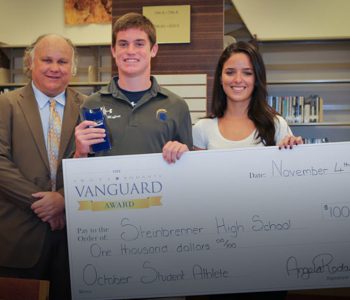 THE
VANGUARD
AWARD
Date: November 4th
Pay to the
Order of: Steinbrenner High School
$100
One thousand dollars 00/100
October Student Athlete